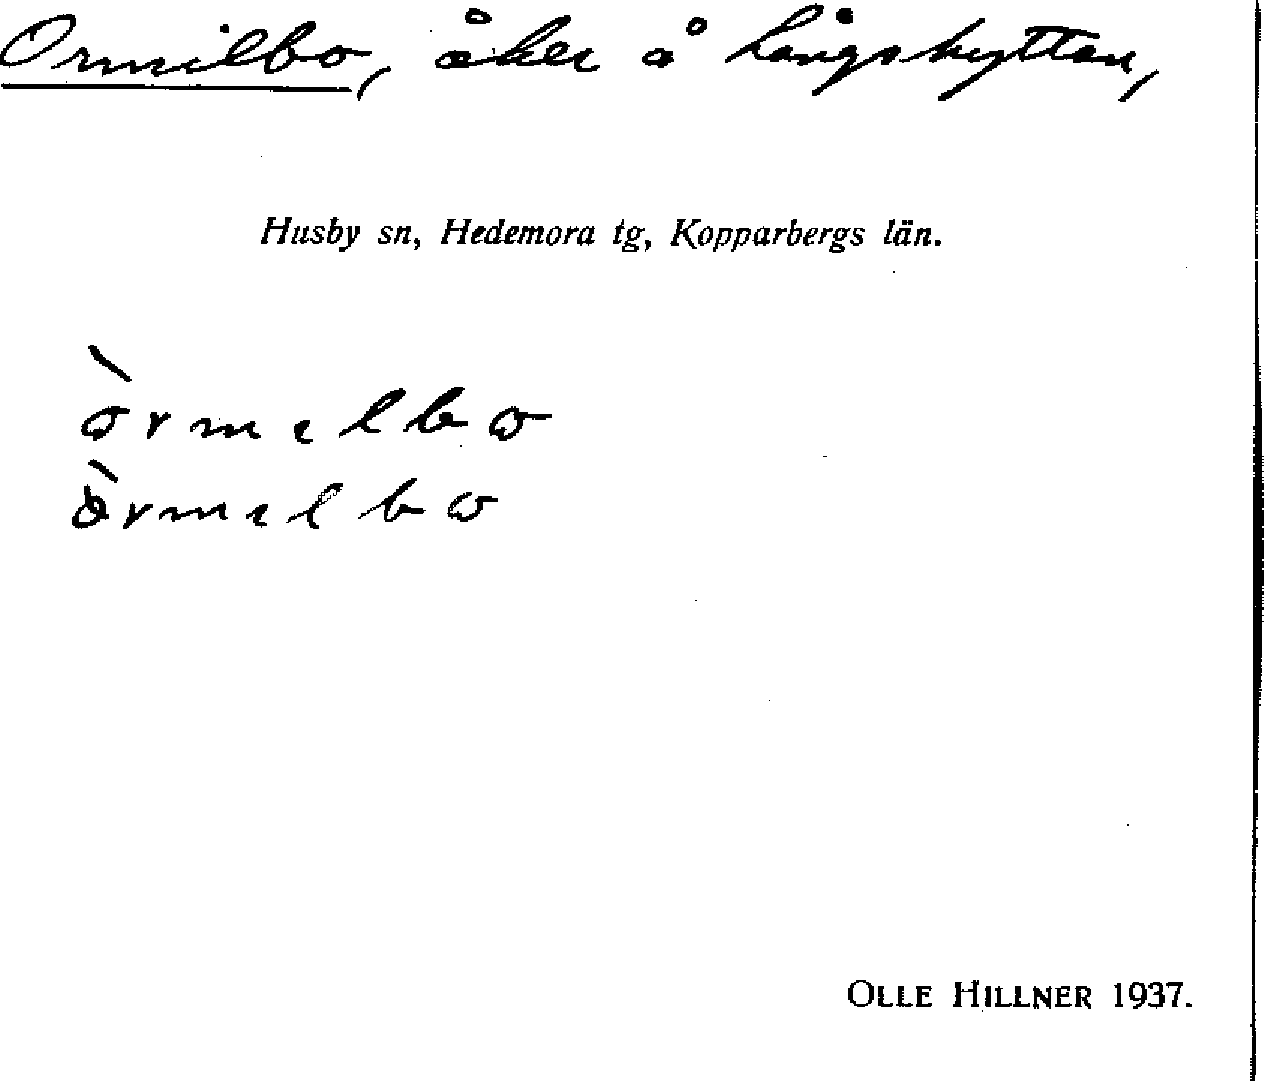 Ormilbo, åker å Långshyttan,
Husby sn, Hedemora tg, Kopparbergs län.
òrmılbω
òrmılbω
OLLE HILLNER 1937.